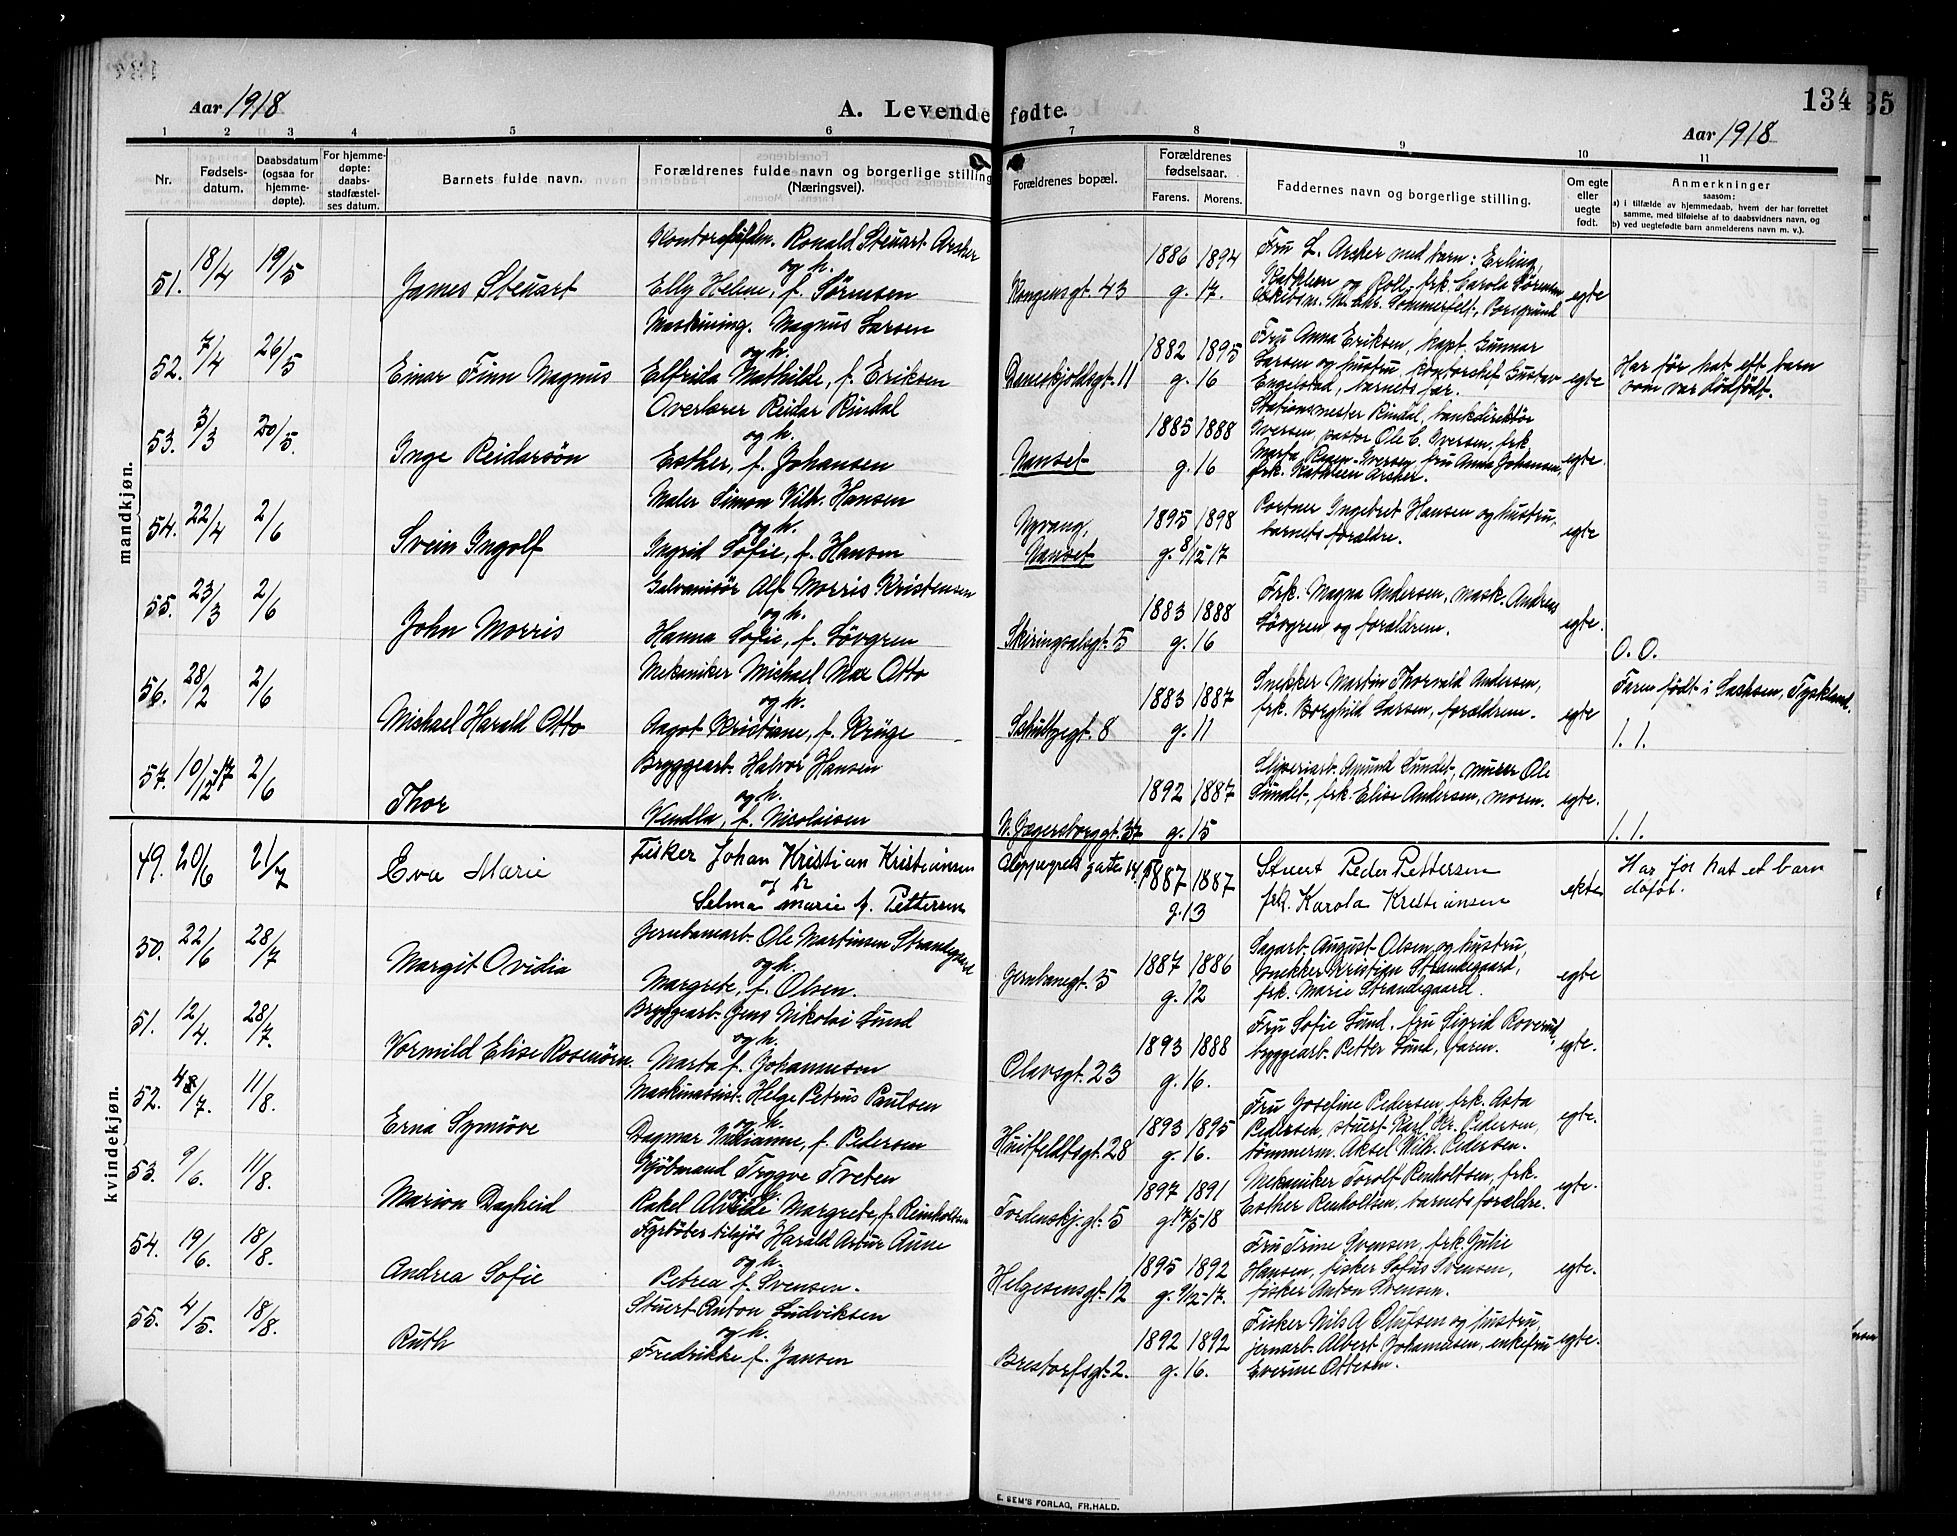 Aar 1918
A. Levendefødte.
134
Aar 1918
35
1 2 3 4 5 6 7 8 9 10 11
Nr.
Fødsels-
datum.
Daabsdatum
(ogsaa for
hjemme-
døpte).
For hjemme-
døpte:
daabs-
stadfæstel-
ses datum.
Barnets fulde navn.
Forældrenes fulde navn og borgerlige stilling
(Næringsvei).
Forældrenes bopæl.
Forældrenes
fødselsaar.
Farens. Morens.
Faddernes navn og borgerlige stilling.
Om egte
eller
uegte
født.
Anmerkninger
saasom:
a) i tilfælde av hjemmedaab, hvem der har forrettet
samme, med tilføielse af to daabsvidners navn, og
b) ved uegtefødte barn anmelderens navn m. v.).
mandkjøn.
51. 18/4 19/5
James Steuart
Ronald Steuart Archer
og h.
Elly Helene, f. Sørensen
Kongensgt. 43
1886 1894
g. 17.
Fru L. Archer med barn: Erling,
Kathleen og Roll, frk. Carola Sørensen
Skibsm. M. Chr. Sommerfelt, Porsgrund
egte
52. 7/4 26/5
Einar Finn Magnus
Maskining. Magnus Larsen
og h.
Elfrida Mathilde, f. Eriksen
Daneskjoldsgt. 11
1882 1895
g. 16
Fru Anna Eriksen, kapt. Gunnar
Larsen og hustru, kontorchef Gustav
Engelstad, barnets far.
egte
Har før hat ett barn
som var dødfødt.
53. 3/3 20/5.
Inge Reidarsøn
Overlærer Reidar Rindal
og h.
Esther, f. Johansen
Nanset
1885 1888
g. 16
Stationsmester Rindal, bankdirektør
Iversen, pastor Ole C. Iversen, frk.
Marta Iversen, fru Anna Johansen,
frk. Kathleen Archer.
egte.
54. 22/4 2/6
Svein Ingolf
Maler Simon Vilh. Hansen
og h.
Ingrid Sofie, f. Hansen
Nyvang,
Nanset
1895 1898
g. 8/12-17
Portner Ingebret Hansen og hustru,
barnets forældre.
egte
55. 23/3 2/6
John Morris
Galvanisør Alf Morris Kristensen
og h.
Hanna Sofie, f. Løvgren
Skiringsalsgt. 5
1883 1888
g. 16
Frk. Magna Andersen, mask. Andreas
Løvgren og forældrene.
egte.
0. 0.
56. 28/2 2/6
Michael Harald Otto
Mekaniker Michael Max Otto
og h.
Aagot Kristiane, f. Krüge
Schultzegt. 8
1883 1887
g. 11
Snekker Martin Thorvald Andersen,
frk. Borghild Larsen, forældrene.
egte
Faren født i Sachsen, Tyskland.
1. 1.
57. 10/12-17 2/6
Thor
Bryggearb. Halvor Hansen
og h.
Vendla, f. Nicolaisen
N. Jegersborggt. 37
1892 1887
g. 15
Sliperiarb. Amund Sundet, murer Ole
Sundet, frk. Elise Andersen, moren.
egte.
1. 1.
kvindekjøn.
49. 20/6 21/7
Eva Marie
Fisker Johan Kristian Kristiansen
og h
Selma Marie f. Pettersen
gate 14
1887 1887
g. 13
Stuert Peder Pettersen
frk. Karola Kristiansen
ekte
Har før hat et barn
døføt.
50. 22/6 28/7
Margit Ovidia
Jernbanearb. Ole Martinsen Strandegaard
og h.
Margrete, f. Olsen.
Jernbanegt. 5
1887 1886
g. 12
Sagarb. August Olsen og hustru,
snekker Kristian Strandegaard,
frk. Marie Strandegaard.
egte
51. 12/4. 28/7.
Vormild Elise Rosenørn.
Bryggearb. Jens Nikolai Lund
og h.
Marta f. Johannesen
Olavsgt. 23
1893 1888
g. 16.
Fru Sofie Lund, fru Sigrid Roverud,
byggearb. Petter Lund, faren.
egte.
52. 11/8.
Erna Synnøve
Maskinassist. Helge Petrus Paulsen
og h.
Dagmar Julianne, f. Pedersen
Huitfeldtsgt. 28
1893 1895
g. 16.
Fru Josefine Pedersen, frk. Asta
Pedersen, stuert Karl Kr. Pedersen,
tømmerm. Aksel Wilh. Pedersen.
egte.
53. 9/6. 11/8.
Marion Dagheid
Kjøbmand Trygve Tveten
og h.
Rakel Alvilde Margrete, f. Reinholtsen
Tordenskj. gt. 5
1897 1891
g. 17/5-18
Mekaniker Torolf Renholtsen, frk.
Esther Renholtsen, barnets forældre.
egte.
54. 19/6. 18/8.
Andrea Sofie
Fyrbøter tilsjøs Harald Artur Aune
og h.
Petrea f. Svensen.
Helgesensgt. 12
1895 1892
g. 9/12-17.
Fru Trine Svensen, frk. Julie
Hansen, fisker Sofus Svensen,
fisker Anton Svensen.
egte.
55. 4/5. 18/8.
Ruth
Stuert Anton Ludviksen
og h.
Fredrikke f. Jansen
Brestorfsgt. 2.
1892 1892
g. 16.
Fisker Nils A. Olufsen og hustru,
jernarb. Albert Johannesen, enkefru
Everine Ottesen.
egte.
E. SEM'S FORLAG, FR.HALD.